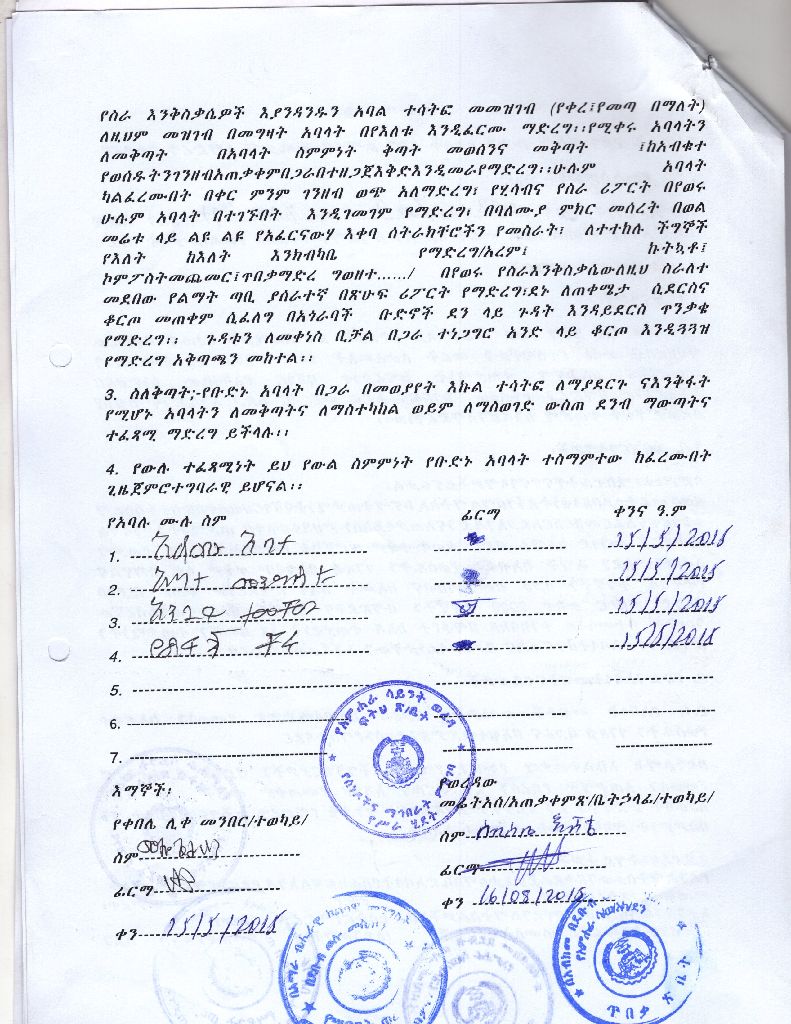 የስራ እንቅስቃሴዎች እያንዳንዱን አባል ተሳትፎ መመዝገብ (የቀረ፤የመጣ በማለት)
ለዚህም መዝገብ በመግዛት አባላት በየእለቱ እንዲፈርሙ ማድረግ፡፡የሚቀሩ አባላትን
ለመቅጣት በአባላት ስምምነት ቅጣት መወሰንና መቅጣት ፤ከአብቁተ
የወሰዱትንገንዘብአጠቃቀምበጋራበተዘጋጀእቅድእንዲመራየማድረግ፡፡ሁሉም አባላት
ካልፈረሙበት በቀር ምንም ገንዘብ ወጭ አለማድረግ፣ የሂሳብና የስራ ሪፖርት በየወሩ
ሁሉም አባላት በተገኙበት እንዲገመገም የማድረግ፣ በባለሙያ ምክር መሰረት በወል
መሬቱ ላይ ልዩ ልዩ የአፈርናውሃ እቀባ ስትራክቸሮችን የመስራት፣ ለተተከሉ ችግኞች
የእለት ከእለት እንክብካቤ የማድረግ/አረም፤ ኩትኳቶ፤
ኮምፖስትመጨመር፤ጥበቃማድረ ግወዘተ....../ በየወሩ የስራእንቅስቃሴውለዚህ ስራለተ
መደበው የልማት ጣቢ ያሰራተኛ በጽሁፍ ሪፖርት የማድረግ፤ደኑ ለጠቀሜታ ሲደርስና
ቆርጦ መጠቀም ሲፈለግ በአጎራባች ቡድኖች ደን ላይ ጉዳት እንዳይደርስ ጥንቃቄ
የማድረግ፡፡ ጉዳቱን ለመቀነስ ቢቻል በጋራ ተነጋግሮ አንድ ላይ ቆርጦ እንዲጓጓዝ
የማድረግ አቅጣጫን መከተል፡፡
3. ስለቅጣት;-የቡድኑ አባላት በጋራ በመወያየት እኩል ተሳትፎ ለማያደርጉ ናእንቅፋት
የሚሆኑ አባላትን ለመቅጣትና ለማስተካከል ወይም ለማስወገድ ውስጠ ደንብ ማውጣትና
ተፈጻሚ ማድረግ ይችላሉ፡፡
4. የውሉ ተፈጻሚነት ይህ የውል ስምምነት የቡድኑ አባላት ተስማምተው ከፈረሙበት
ጊዜጀምሮተግባራዊ ይሆናል፡፡
የአባሉ ሙሉ ስም ፊርማ ቀንና ዓ.ም
1. 15/5/2015
2. 15/5/2015
3. 15/5/2015
4. 15/5/2015
5.
6.
7.
እማኞች፡
የቀበሌ ሊቀ መንበር/ተወካይ/
ስም
ፊርማ
ቀን 15/5/2015
የወረዳው
መሬትአስ/አጠቃቀምጽ/ቤትኃላፊ/ተወካይ/
ስም
ፊርማ
ቀን 16/08/2015